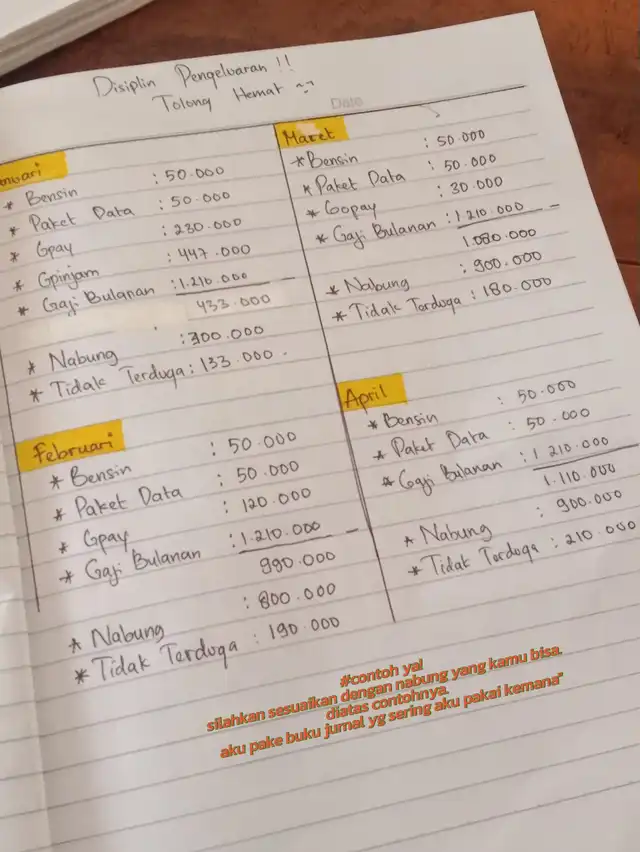 Disiplin Pengeluaran !!
Tolong Hemat
Date
enuari
* Bensin : 50.000
* Paket Data : 50.000
* Gpay : 230.000
* Gpinjam : 447.000
* Gaji Bulanan : 1.210.000 -
433.000
* Nabung : 300.000
* Tidak Terduga : 133.000.
Februari
* Bensin : 50.000
* Paket Data : 50.000
* Gpay : 120.000
* Gaji Bulanan : 1.210.000 -
990.000
* Nabung : 800.000
* Tidak Terduga : 190.000
Maret
* Bensin : 50.000
* Paket Data : 50.000
* Gopay : 30.000
* Gaji Bulanan : 1.210.000 -
1.080.000
* Nabung : 900.000
* Tidak Terduga : 180.000
April
* Bensin : 50.000
* Paket Data : 50.000
* Gaji Bulanan : 1.210.000
1.110.000
* Nabung : 900.000
* Tidak Terduga : 210.000
#contoh ya!
silahkan sesuaikan dengan nabung yang kamu bisa.
diatas contohnya.
aku pake buku jurnal yg sering aku pakai kemana"